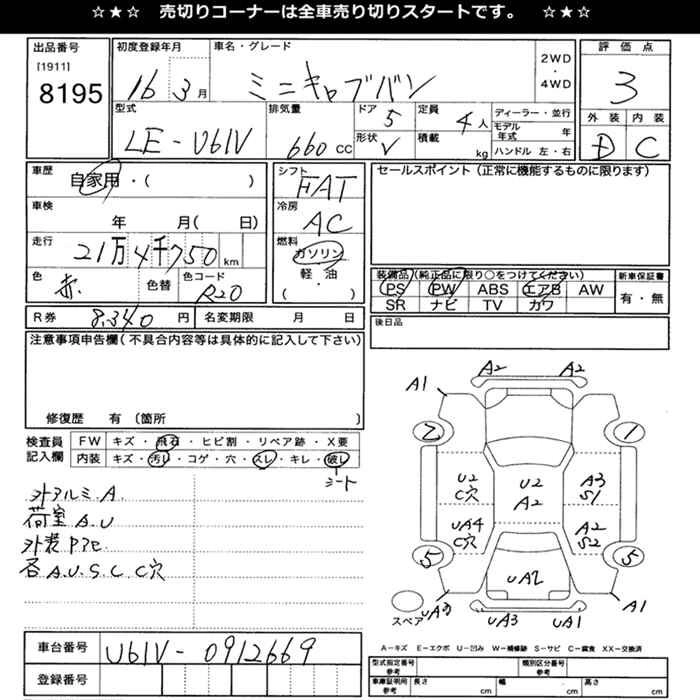 ☆★☆ 売切りコーナーは全車売り切りスタートです。 ☆★☆
出品番号
[1911]
8195
初度登録年月
16 3月
車名・グレード
ミニキャブバン
2WD
・
4WD
評価点
3
型式
LE-U61V
排気量
660cc
ドア
5
形状
V
定員
4人
積載
kg
ディーラー・並行
モデル年式 年
ハンドル 左・右
外装
D
内装
C
車歴
自家用・( )
車検
年 月( 日)
走行
21万4千750km
色
赤
色替
色コード
R20
シフト
FAT
冷房
AC
燃料
ガソリン
軽・油
( )
セールスポイント (正常に機能するものに限ります)
装備品 (純正品に限り○をつけてください)
PS PW ABS エアB AW
SR ナビ TV カワ
新車保証書
有・無
R券 8,340円
名変期限 月 日
後日品
注意事項申告欄 (不具合内容等は具体的に記入して下さい)
修復歴 有 (箇所 )
検査員
記入欄
FW キズ・飛石・ヒビ割・リペア跡・X要
内装 キズ・汚レ・コゲ・穴・スレ・キレ・破レ
シート
外アルミA.
荷室A.U
外装Pアセ.
各A.U.S.C C穴
A2 A2
A1
2 1
U2
C穴
U2
A2
A3
S1
UA4
C穴
A2
S2
5 5
UA2
スペア
UA3 UA3 UA1 A1
A-キズ E-エクボ U-凹み W-補修跡 S-サビ C-腐食 XX-交換済
車台番号
U61V-0912669
登録番号
型式指定番号
参考
類別区分番号
参考
車庫証明用
参考
長さ cm
幅 cm
高さ cm